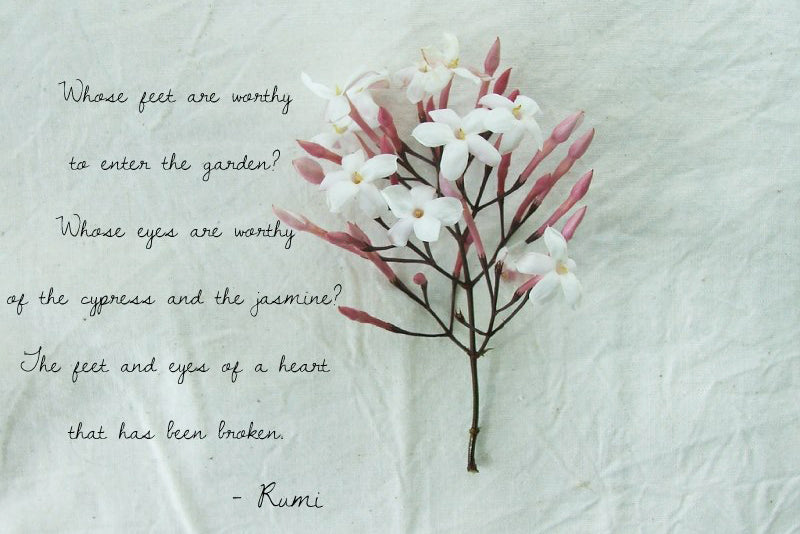 Whose feet are worthy
to enter the garden?
Whose eyes are worthy
of the cypress and the jasmine?
The feet and eyes of a heart
that has been broken.
- Rumi